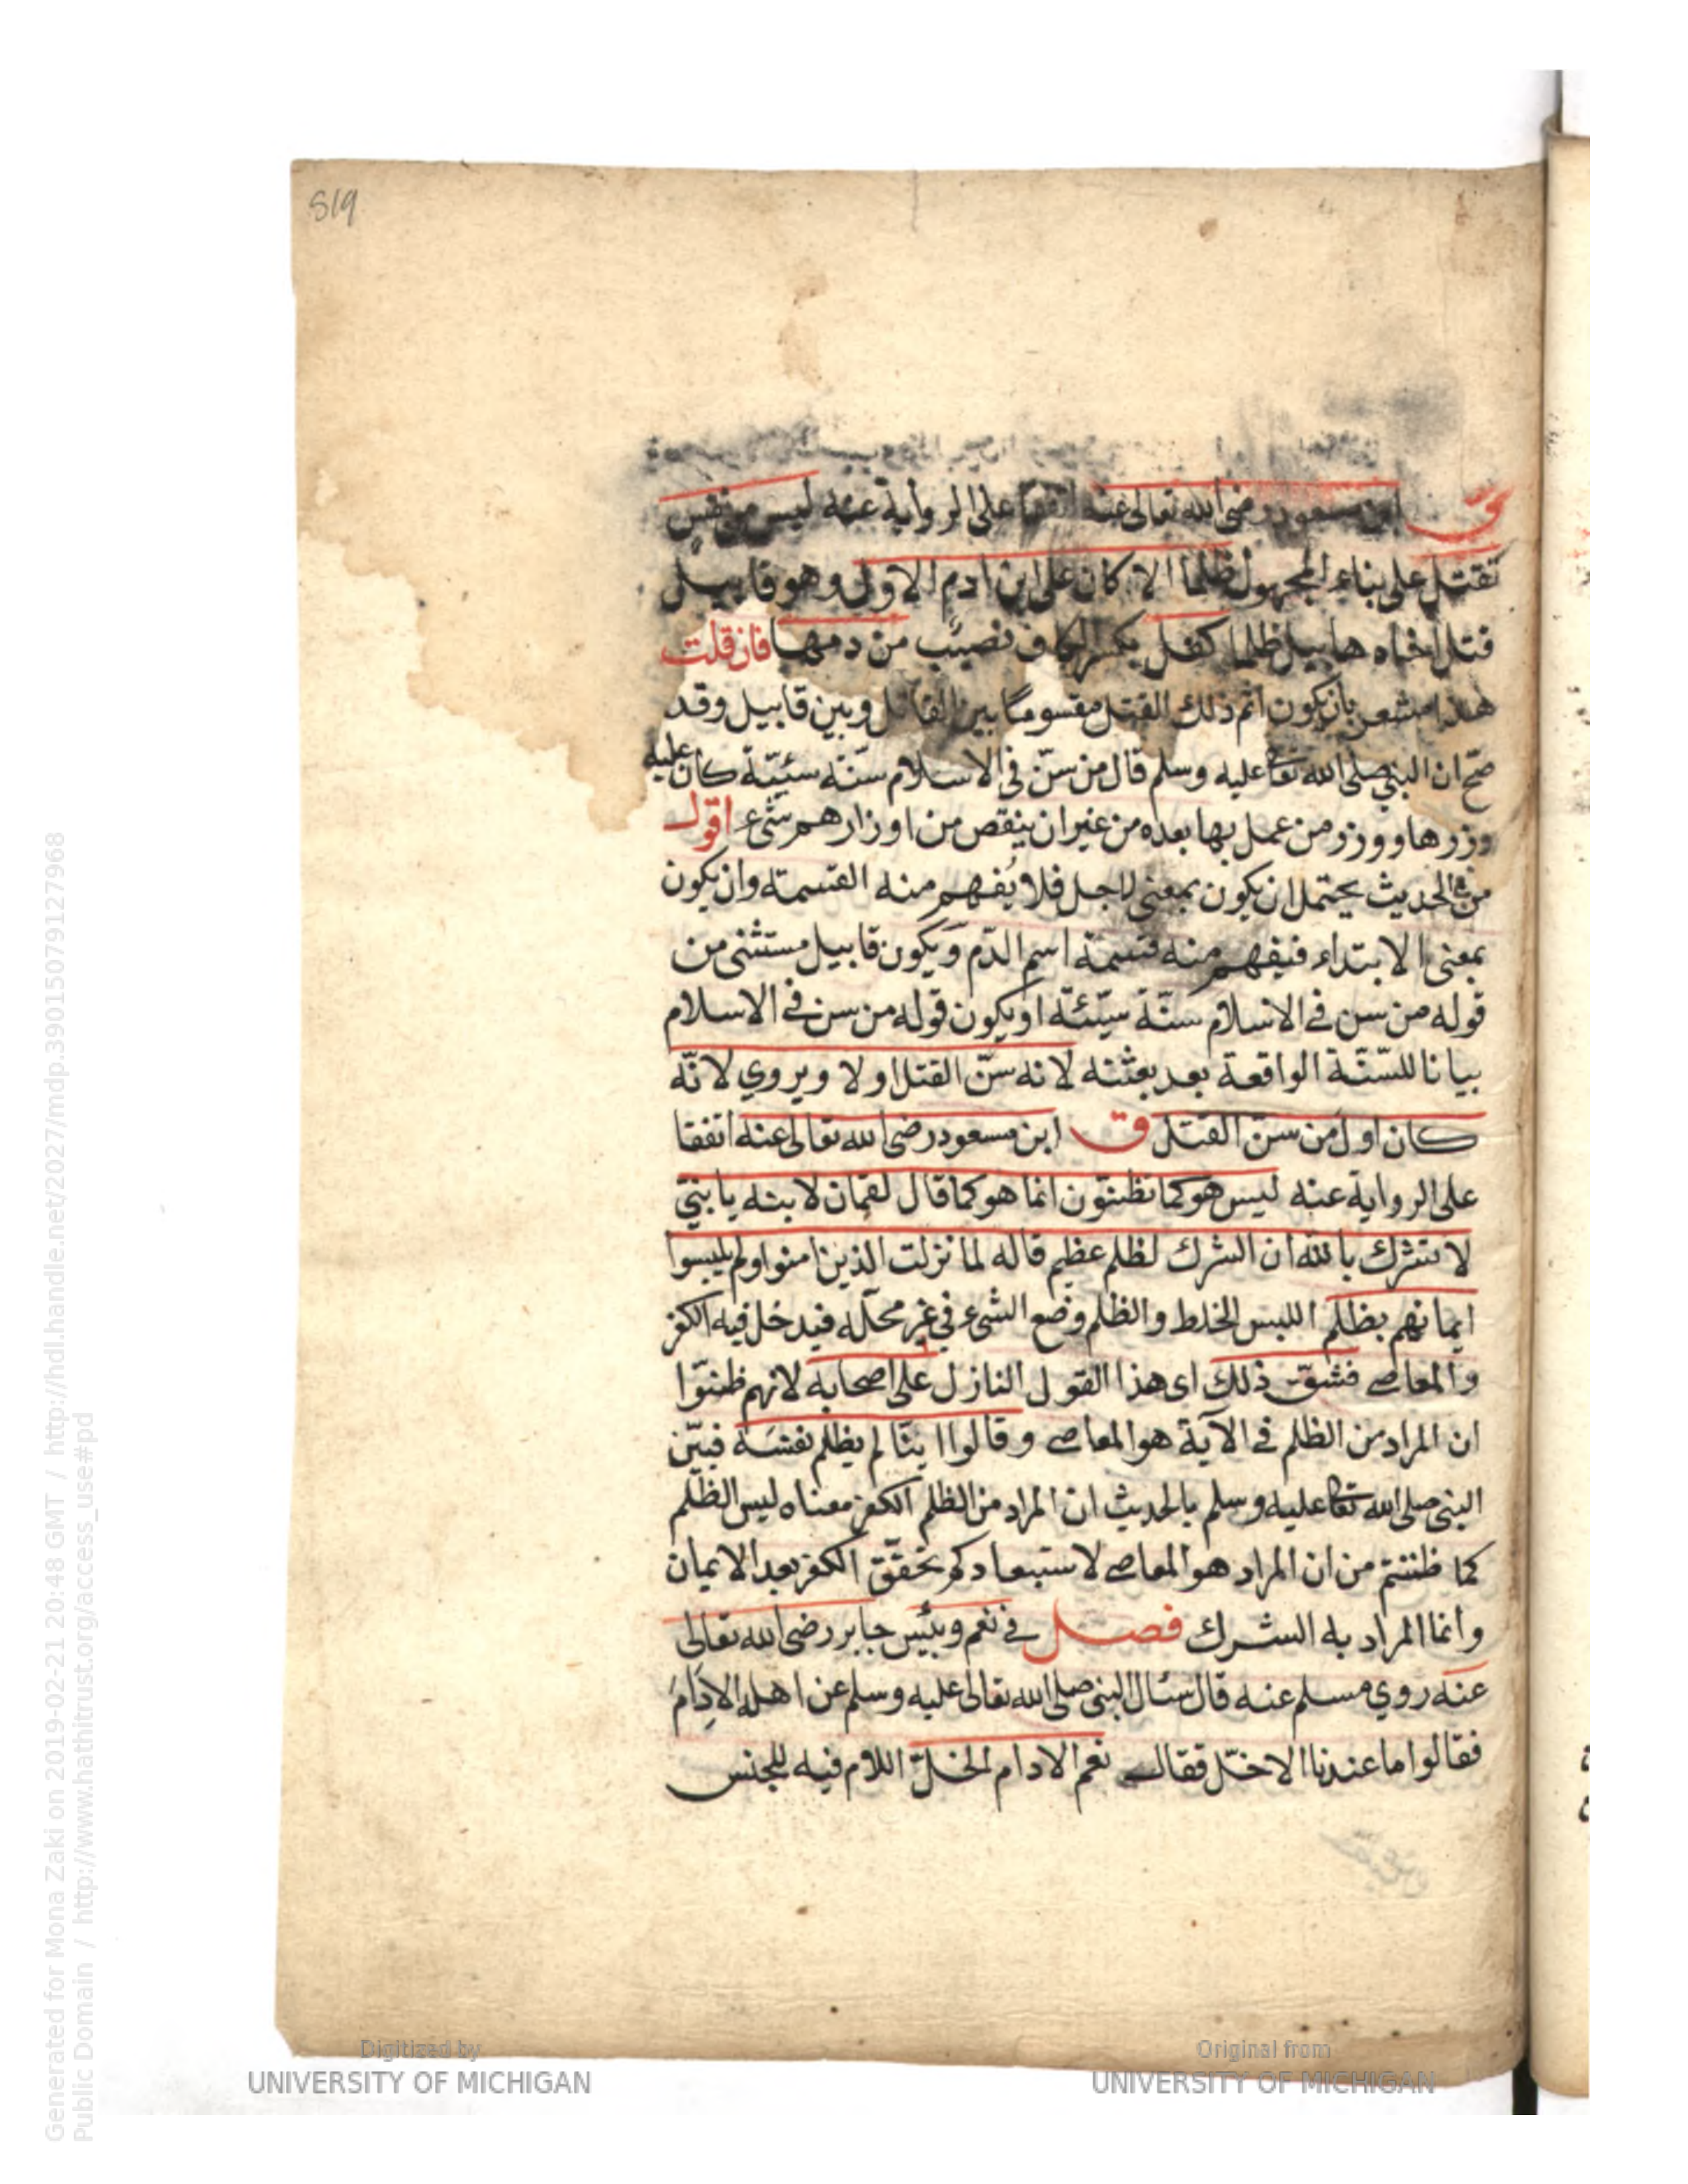 519
ق ابن مسعود رضي الله تعالى عنه اتفقا على الرواية عنه ليس من نفس
تقتل على بناء المجهول ظلما الا كان على ابن ادم الاول وهو قابيل
قتل اخاه هابيل ظلما كفل بكسر الكاف نصيب من دمها فان قلت
هذا مشعر بان يكون اثم ذلك القتل مقسوما بين القاتل وبين قابيل وقد
صح ان النبي صلى الله تعا عليه وسلم قال من سن في الاسلام سنة سيئة كان عليه
وزرها ووزر من عمل بها بعده من غير ان ينقص من اوزارهم شيء اقول
من في الحديث يحتمل ان يكون بمعنى لاجل فلا يُفهم منه القسمة وان يكون
بمعنى الابتداء فيفهم منه قسمة اسم الدّم ويكون قابيل مستثنى من
قوله من سن في الاسلام سنّة سيّئة او يكون قوله من سن في الاسلام
بيانا للسّنّة الواقعة بعد بعثته لانه سنّ القتل اولا ويروي لانّه
كان اول من سنّ القتل ق ابن مسعود رضي الله تعالى عنه اتفقا
على الرواية عنه ليس هو كما تظنون انما هو كما قال لقمان لابنه يا بنيّ
لا تشرك بالله ان الشرك لظلم عظيم قاله لما نزلت الذين امنوا ولم يلبسوا
ايمانهم بظلم اللبس الخلط والظلم وضع الشيء في غير محلّه فيدخل فيه الكفر
والمعاصي فشقّ ذلك اى هذا القول النازل على اصحابه لانهم ظنّوا
ان المراد من الظلم في الآية هو المعاصي وقالوا اينّا لم يظلم نفسَه فبيّن
النبي صلى الله تعا عليه وسلم بالحديث ان المراد من الظلم الكفر معناه ليس الظّلم
كما ظننتم من ان المراد هو المعاصي لاستبعادكم تحقّق الكفر بعد الايمان
وانما المراد به الشرك فصل في نعم وبئس جابر رضي الله تعالى
عنه روي مسلم عنه قال سئال النبي صلى الله تعالى عليه وسلم عن اهله الادام
فقالوا ما عندنا الا خلّ فقال نعم الادام الخلّ اللام فيه للجنس
Generated for Mona Zaki on 2019-02-21 20:48 GMT / http://hdl.handle.net/2027/mdp.39015079127968
Public Domain / http://www.hathitrust.org/access_use#pd
Digitized by
UNIVERSITY OF MICHIGAN
Original from
UNIVERSITY OF MICHIGAN